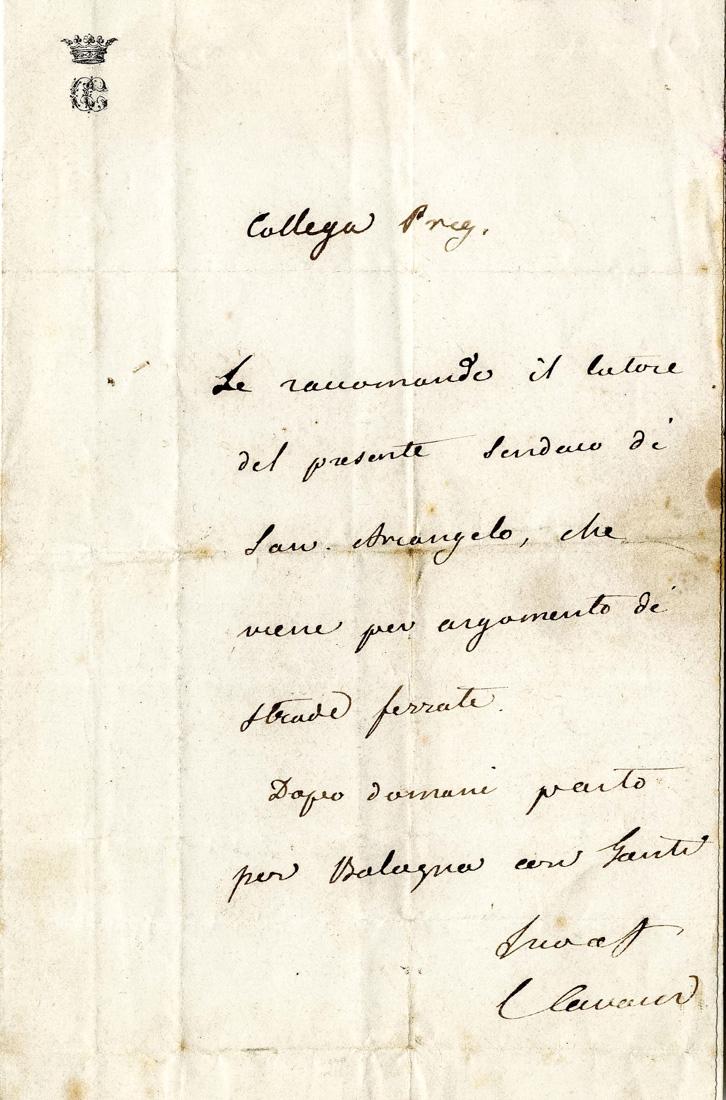 Collega Preg.
Le raccomando il latore
del presente Sindaco di
San Arcangelo, che
viene per argomento di
strade ferrate.
Dopo domani parto
per Bologna con
Suo aff